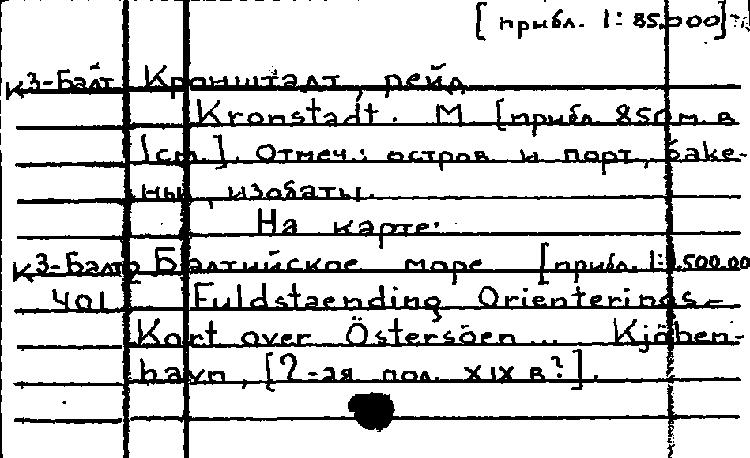 [прибл. 1:85.000]
К3-Балт Кронштадт, рейд
Kronstadt. М [прибл 850 м. в
1 см.]. Отмеч.: остров и порт, баке-
ны, изобаты.
На карте:
К3-Балт Балтийское море [прибл. 1:1.500.00
401 Fuldstaending Orienterings-
Kort over Östersöen... Kjöben-
havn, [2-ая пол. XIX в?].